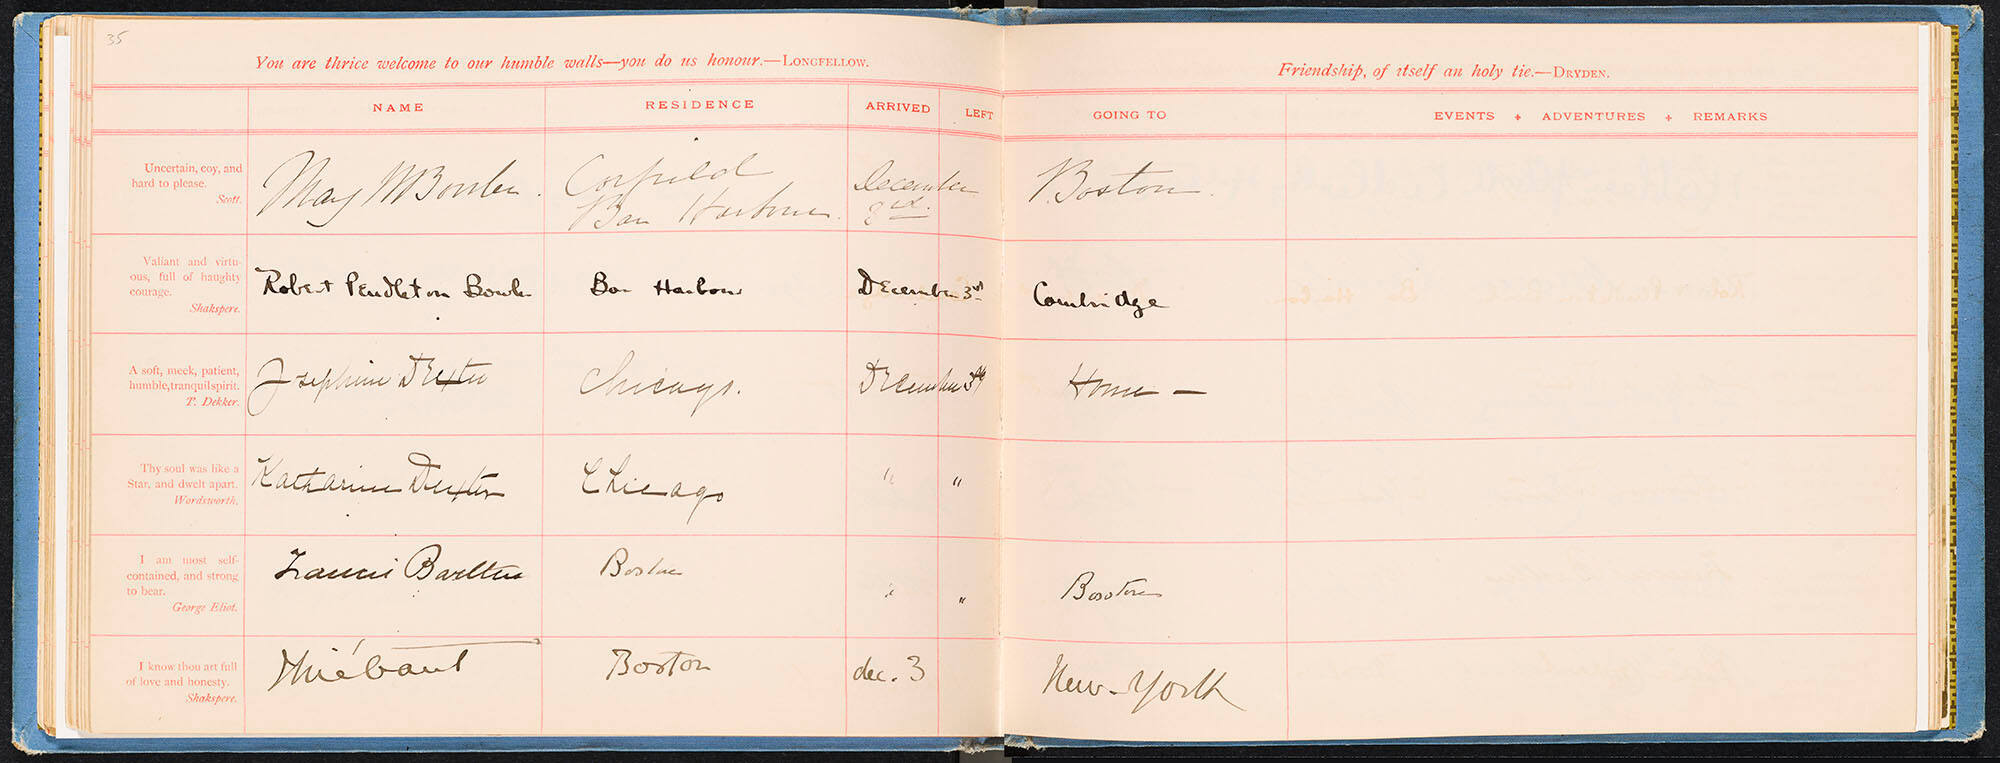 35
You are thrice welcome to our humble walls—you do us honour.—LONGFELLOW.
Friendship, of itself an holy tie.—DRYDEN.
NAME RESIDENCE ARRIVED LEFT GOING TO EVENTS + ADVENTURES + REMARKS
Uncertain, coy, and
hard to please.
Scott.
May M Bowler. Corfield
Bar Harbour. December
3rd. Boston.
Valiant and virtu-
ous, full of haughty
courage.
Shakspere.
Robert Pendleton Bowler Bar Harbour December 3rd Cambridge
A soft, meek, patient,
humble, tranquil spirit.
T. Dekker.
Josephine Dexter Chicago. December 3rd Home —
Thy soul was like a
Star, and dwelt apart.
Wordsworth.
Katharine Dexter Chicago " "
I am most self-
contained, and strong
to bear.
George Eliot.
Francis Bartlett Boston " " Boston
I know thou art full
of love and honesty.
Shakspere.
Thiébaut Boston dec. 3 New-York